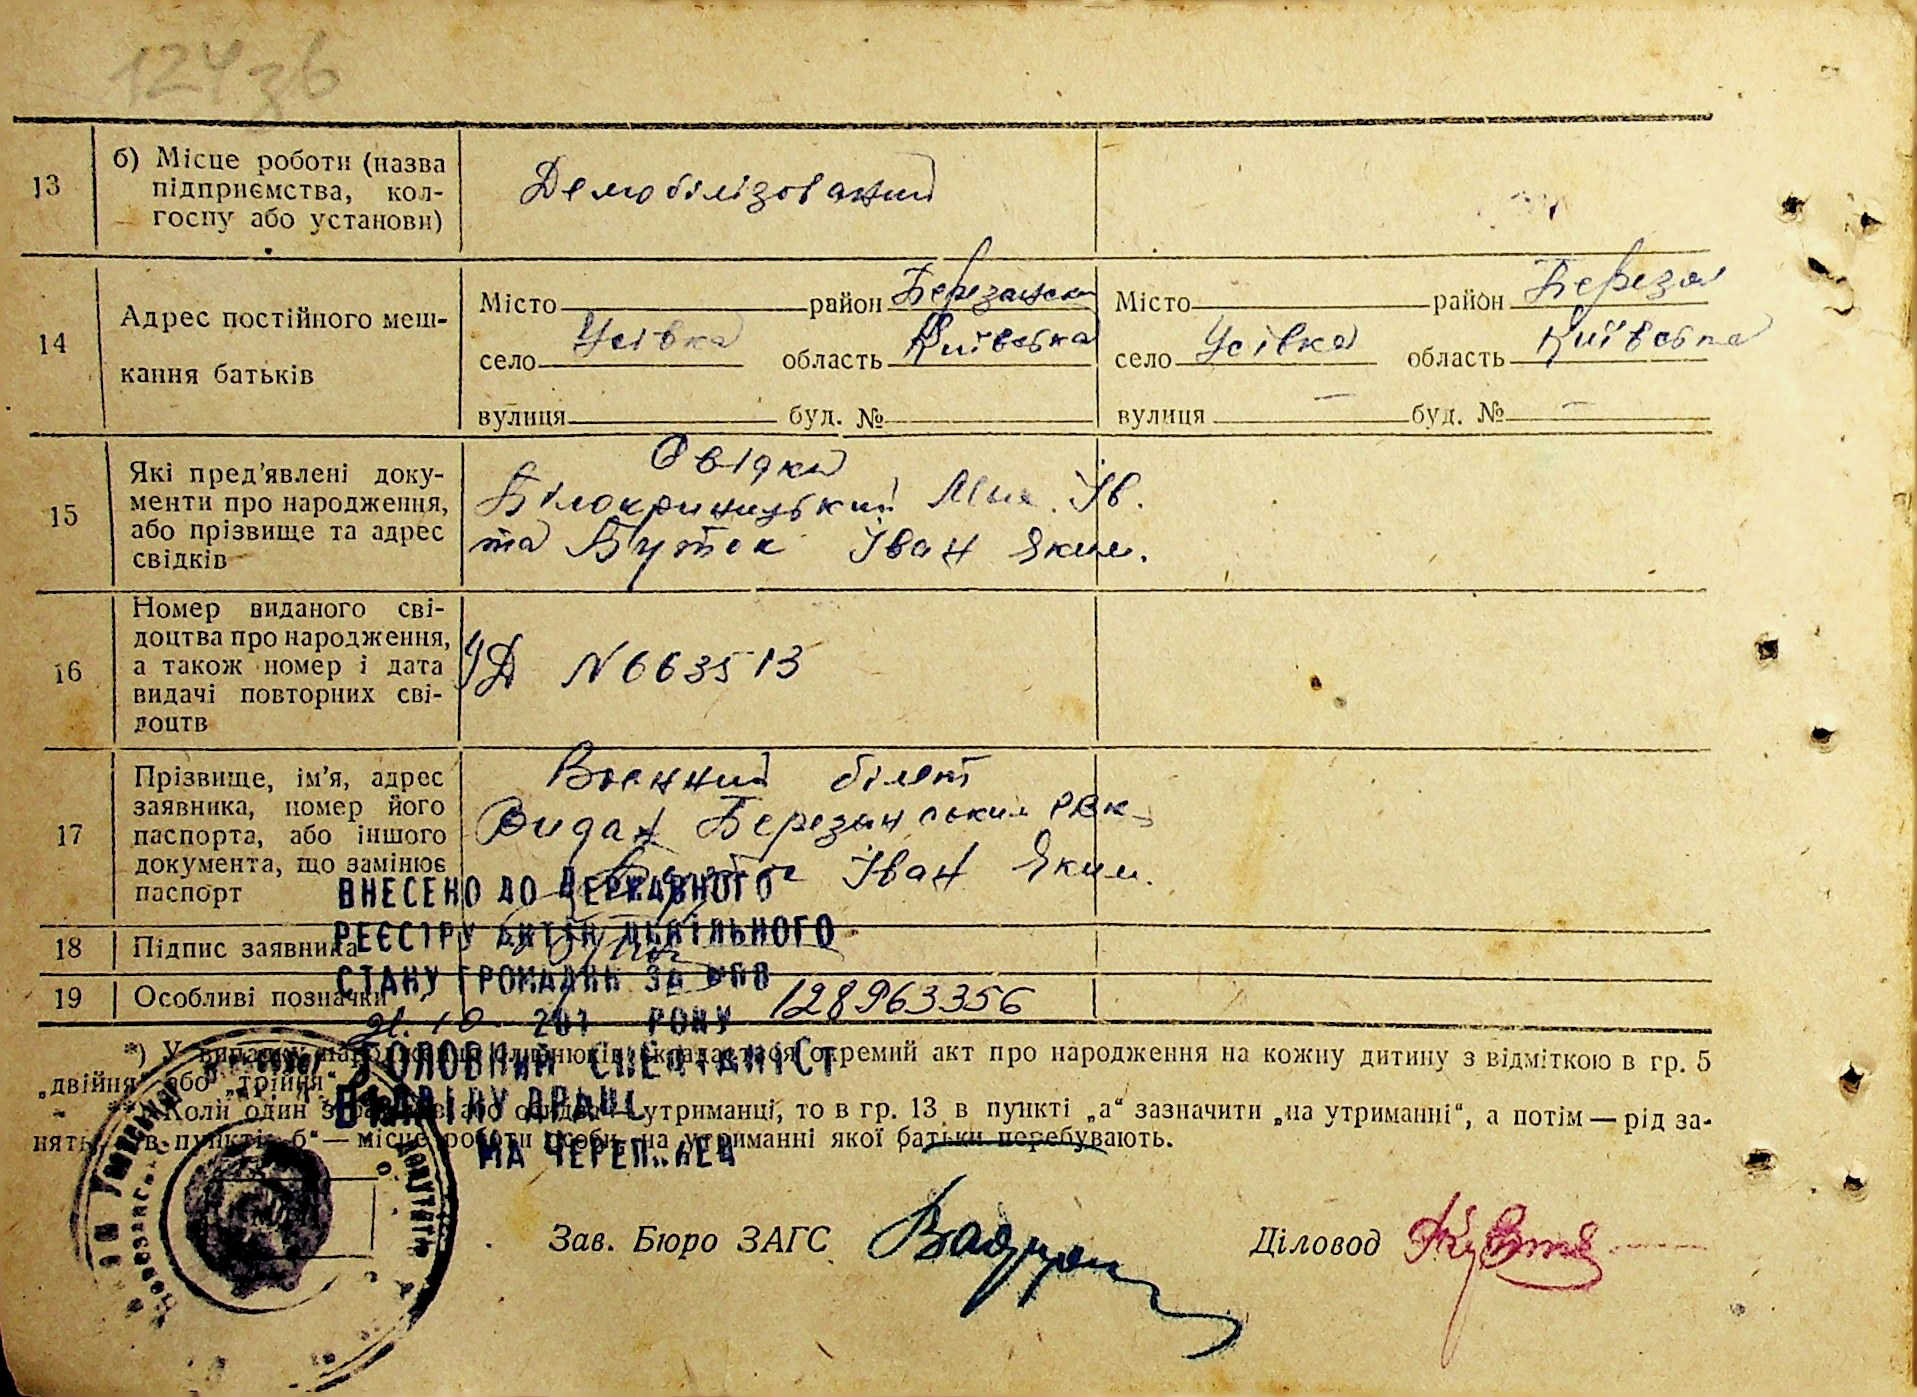 124 зв
13
б) Місце роботи (назва
підприємства, кол-
госпу або установи)
Демобілізований
14
Адрес постійного меш-
кання батьків
Місто район Березанськ
село Усівка область Київська
вулиця буд. №
Місто район Береза
село Усівка область Київська
вулиця — буд. № —
15
Які пред'явлені доку-
менти про народження,
або прізвище та адрес
свідків
Свідки
Білокриницький Мих. Ів.
та Буток Іван Яким.
16
Номер виданого сві-
доцтва про народження,
а також номер і дата
видачі повторних сві-
доцтв
УД N 663513
17
Прізвище, ім'я, адрес
заявника, номер його
паспорта, або іншого
документа, що замінює
паспорт
Воєнний білет
Видан Березанським РВК
Буток Іван Яким.
18
Підпис заявника
19
Особливі позначки
ВНЕСЕНО ДО ДЕРЖАВНОГО
РЕЄСТРУ АКТІВ ЦИВІЛЬНОГО
СТАНУ ГРОМАДЯН ЗА №
128963356
201 РОКУ
ГОЛОВНИЙ СПЕЦІАЛІСТ
ВІДДІЛУ ДРАЦС
*) У випадку народження близнюків складається окремий акт про народження на кожну дитину з відміткою в гр. 5
„двійня“ або „трійня“.
Коли один з утриманці, то в гр. 13 в пункті „а“ зазначити „на утриманні“, а потім — рід за-
няття, в пункті „б“ — місце роботи особи, на утриманні якої батьки перебувають.
Зав. Бюро ЗАГС
Діловод